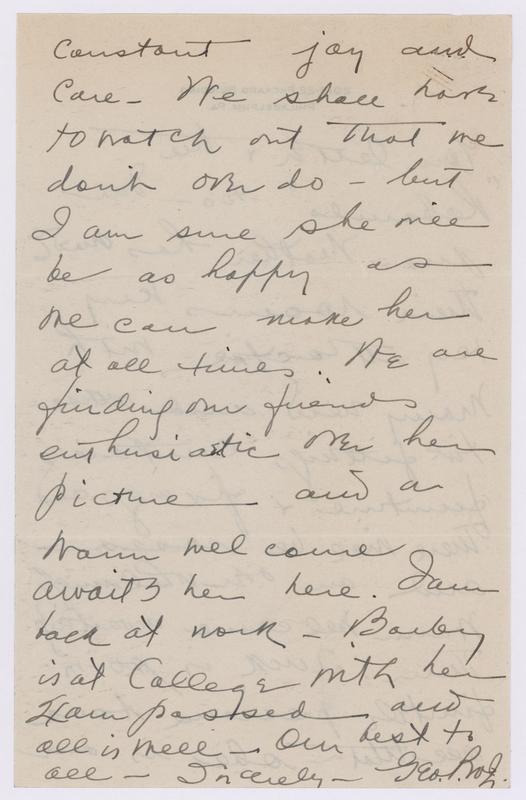 Constant joy and
Care - We shall have
to watch out that we
don't over do - but
I am sure she will
be as happy as
we can make her
at all times. We are
finding our friends
enthusiastic over her
picture and a
warm welcome
awaits her here. I am
back at work - Barby
is at College with her
Exam passed and
all is well - Our best to
all - Sincerely - Geo.